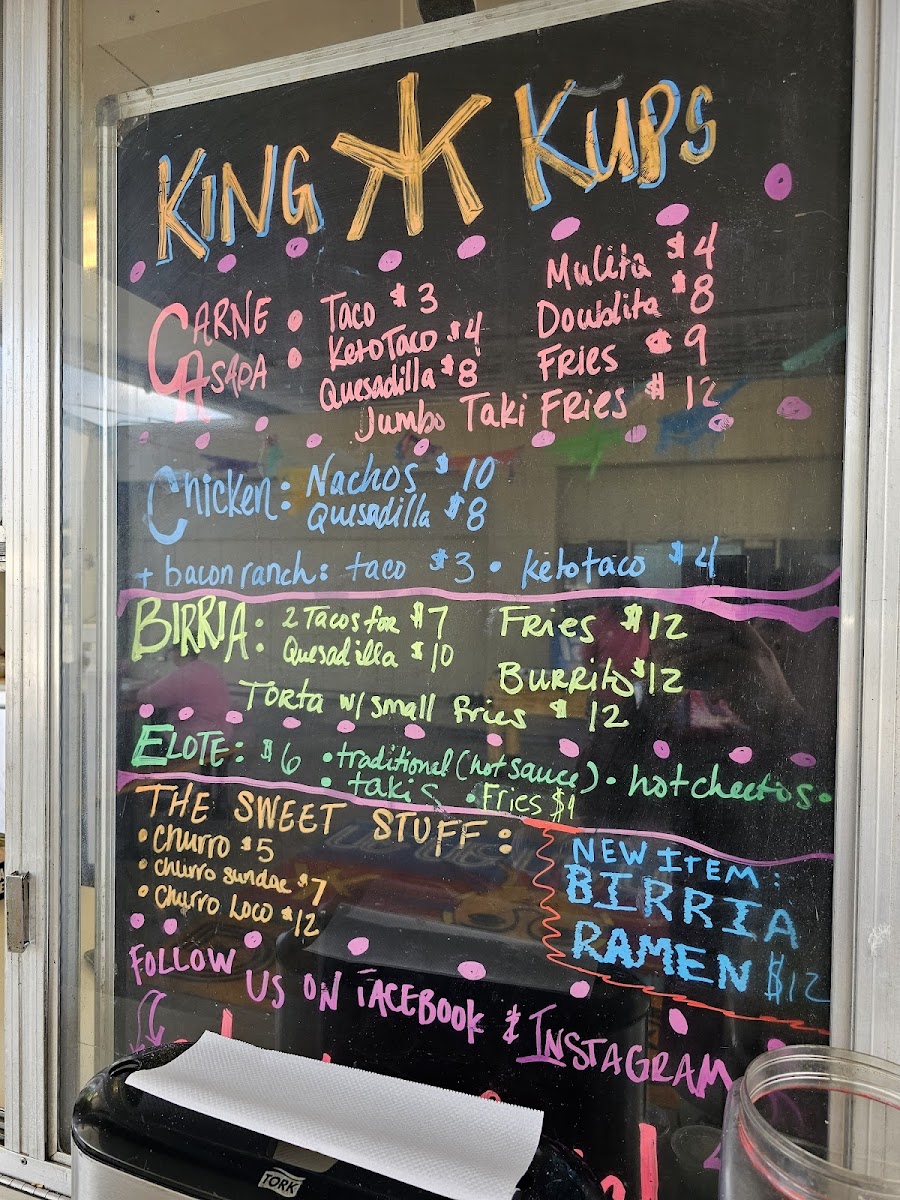 KING KUPS
CARNE ASADA
• Taco $3
• Keto Taco $4
Quesadilla $8
Mulita $4
Doublita $8
Fries $9
Jumbo Taki Fries $12
Chicken: Nachos $10
Quesadilla $8
+ bacon ranch: taco $3 • keto taco $4
BIRRIA: 2 Tacos for $7
Quesadilla $10
Fries $12
Burrito $12
Torta w/ small fries $12
ELOTE: $6 • traditional (hot sauce) • hot cheetos •
• takis • Fries $9
THE SWEET STUFF:
• Churro $5
• churro sundae $7
• Churro Loco $12
NEW ITEM:
BIRRIA
RAMEN $12
FOLLOW US ON FACEBOOK & INSTAGRAM
TORK